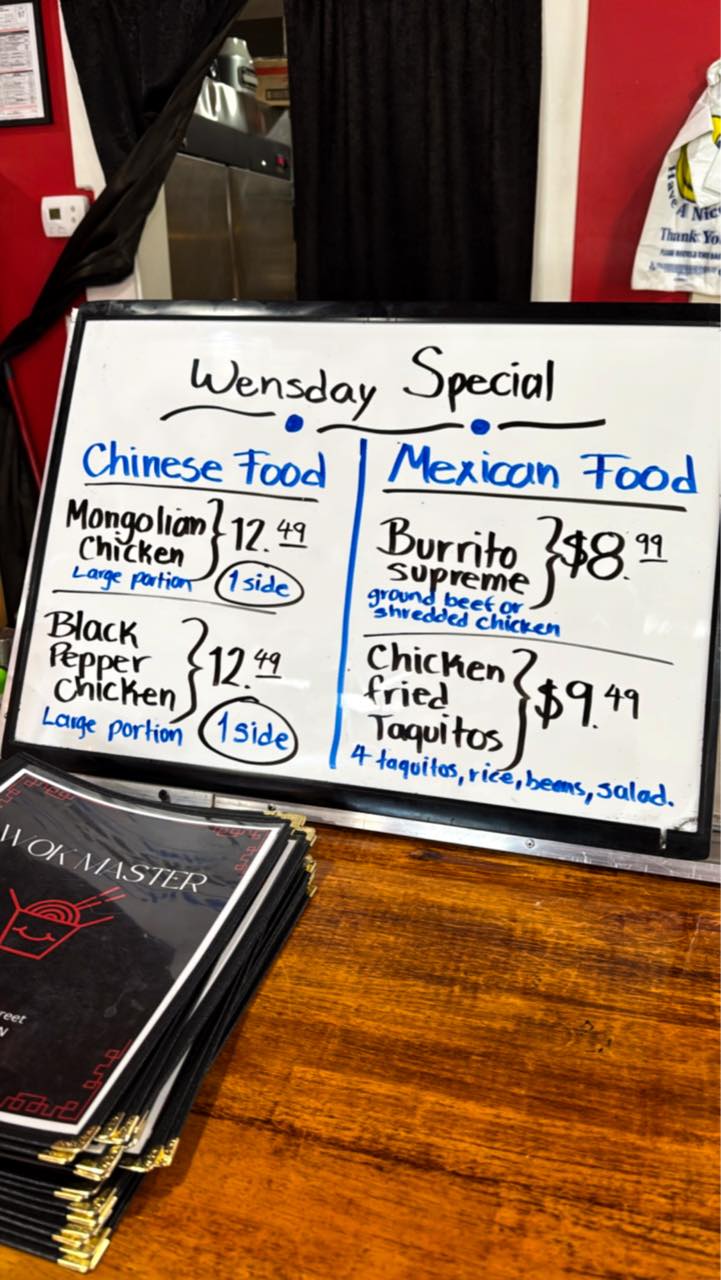 Have
A Nice
Thank Yo
Wensday Special
Chinese Food
Mongolian
Chicken
12.49
Large portion
1 side
Black
Pepper
Chicken
12.49
Large portion
1 side
Mexican Food
Burrito
supreme
$8.99
ground beef or
shredded chicken
Chicken
fried
Taquitos
$9.49
4 taquitos, rice, beans, salad.
WOK MASTER
reet
N